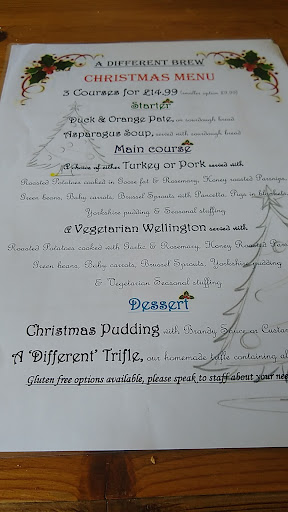 A DIFFERENT BREW
CHRISTMAS MENU
3 Courses for £14.99 (smaller option £9.99)
Starter
Duck & Orange Pate, on sourdough bread
Asparagus Soup, served with sourdough bread
Main course
A choice of either Turkey or Pork served with
Roasted Potatoes cooked in Goose fat & Rosemary, Honey roasted Parsnips,
Green beans, Baby carrots, Brussel Sprouts with Pancetta, Pigs in blankets,
Yorkshire pudding & Seasonal stuffing
A Vegetarian Wellington served with
Roasted Potatoes cooked with Garlic & Rosemary, Honey Roasted
Green beans, Baby carrots, Brussel Sprouts, Yorkshire pudding
& Vegetarian Seasonal stuffing
Dessert
Christmas Pudding with Brandy Sauce or
A 'Different' Trifle, our homemade trifle containing
Gluten free options available, please speak to staff about your